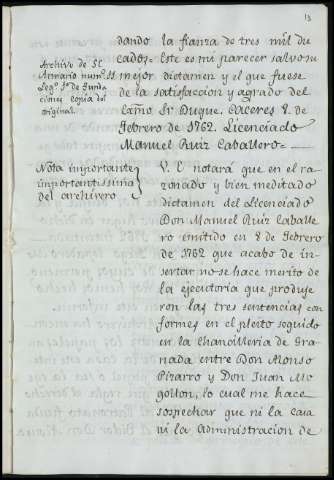 13
dando la fianza de tres mil du
cados= Este es mi parecer salvo su
mejor dictamen y el que fuese
de la satisfaccion y agrado del
Exmo Sr Duque. Caceres 8. de
Febrero de 1762. Licenciado
Manuel Ruiz Caballero=
Archivo de St.
Armario num.º 11
Leg.º 1.º de Funda
ciones copia del
original.
Nota importante
importantissima
del archivero
V. E notará que en el ra
zonado y bien meditado
dictamen del Licenciado
Don Manuel Ruiz Caballe
ro emitido en 8 de Febrero
de 1762 que acabo de in
sertar no se hace merito de
la ejecutoria que produje
ron las tres sentencias con
formes en el pleito seguido
en la Chancilleria de Gra
nada entre Don Alonso
Pizarro y Don Juan Mo
gollon, lo cual me hace
sospechar que ni la Casa
ni la Administracion de